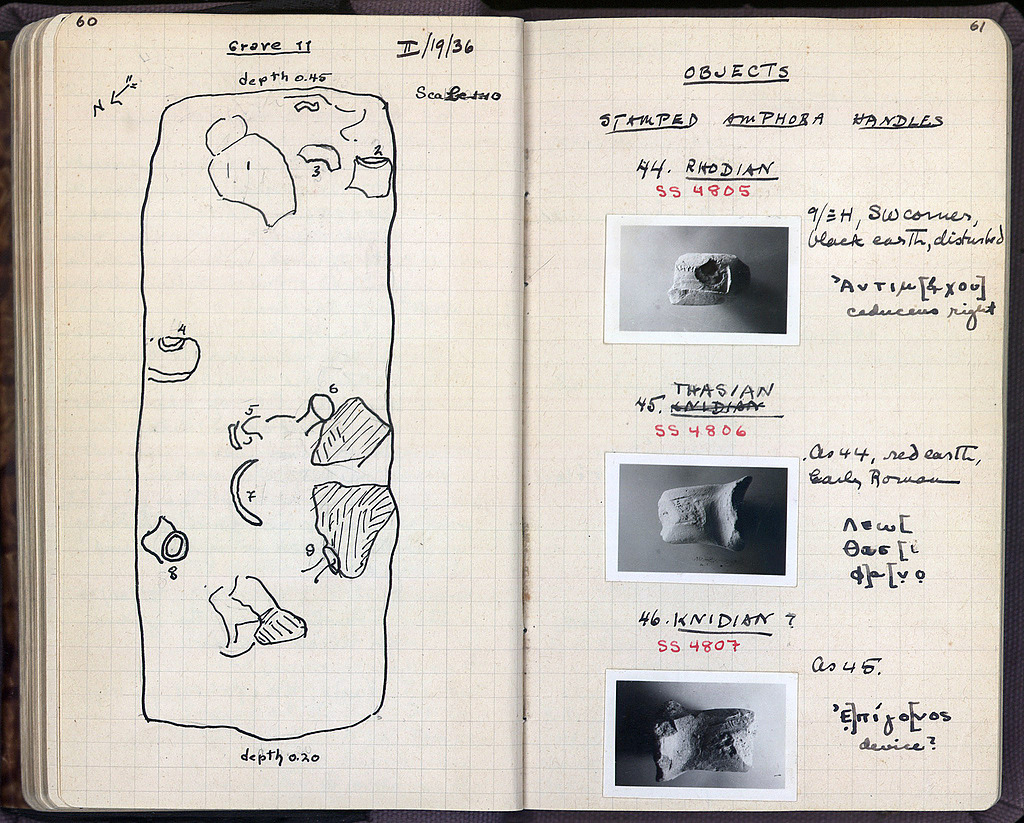 60
Grave 11
II/19/36
depth 0.45
Scale 1:10
N
2
3
4
5
6
7
8
9
depth 0.20
61
OBJECTS
STAMPED AMPHORA HANDLES
44. RHODIAN
SS 4805
9/ΞΗ, SW corner,
black earth, disturbed
Ἀντιμ[άχου]
caduceus right
THASIAN
45. KNIDIAN
SS 4806
As 44, red earth,
Early Roman
Λεω[
Θασ[ί
Φ]α[νο
46. KNIDIAN ?
SS 4807
As 45.
Ἐ]πίγο[νος
device?